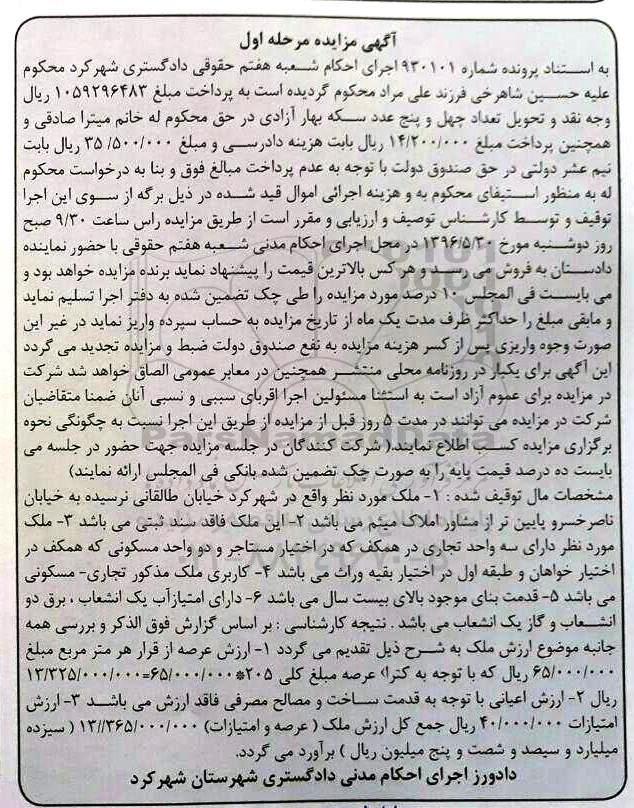 آگهی مزایده مرحله اول
به استناد پرونده شماره ۹۳۰۱۰۱ اجرای احکام شعبه هفتم حقوقی دادگستری شهرکرد محکوم
علیه حسین شاهرخی فرزند علی مراد محکوم گردیده است به پرداخت مبلغ ۱۰۵۹۲۹۶۴۸۳ ریال
وجه نقد و تحویل تعداد چهل و پنج عدد سکه بهار آزادی در حق محکوم له خانم میترا صادقی و
همچنین پرداخت مبلغ ۱۴/۲۰۰/۰۰۰ ریال بابت هزینه دادرسی و مبلغ ۳۵/۵۰۰/۰۰۰ ریال بابت
نیم عشر دولتی در حق صندوق دولت با توجه به عدم پرداخت مبالغ فوق و بنا به درخواست محکوم
له به منظور استیفای محکوم به و هزینه اجرائی اموال قید شده در ذیل برگه از سوی این اجرا
توقیف و توسط کارشناس توصیف و ارزیابی و مقرر است از طریق مزایده راس ساعت ۹/۳۰ صبح
روز دوشنبه مورخ ۱۳۹۶/۵/۳۰ در محل اجرای احکام مدنی شعبه هفتم حقوقی با حضور نماینده
دادستان به فروش می رسد و هر کس بالاترین قیمت را پیشنهاد نماید برنده مزایده خواهد بود و
می بایست فی المجلس ۱۰ درصد مورد مزایده را طی چک تضمین شده به دفتر اجرا تسلیم نماید
و مابقی مبلغ را حداکثر ظرف مدت یک ماه از تاریخ مزایده به حساب سپرده واریز نماید در غیر این
صورت وجوه واریزی پس از کسر هزینه مزایده به نفع صندوق دولت ضبط و مزایده تجدید می گردد
این آگهی برای یکبار در روزنامه محلی منتشر همچنین در معابر عمومی الصاق خواهد شد شرکت
در مزایده برای عموم آزاد است به استثنا مسئولین اجرا اقربای سببی و نسبی آنان ضمنا متقاضیان
شرکت در مزایده می توانند در مدت ۵ روز قبل از مزایده از طریق این اجرا نسبت به چگونگی نحوه
برگزاری مزایده کسب اطلاع نمایند( شرکت کنندگان در جلسه مزایده جهت حضور در جلسه می
بایست ده درصد قیمت پایه را به صورت چک تضمین شده بانکی فی المجلس ارائه نمایند)
مشخصات مال توقیف شده : ۱- ملک مورد نظر واقع در شهرکرد خیابان طالقانی نرسیده به خیابان
ناصرخسرو پایین تر از مشاور املاک میثم می باشد ۲- این ملک فاقد سند ثبتی می باشد ۳- ملک
مورد نظر دارای سه واحد تجاری در همکف که در اختیار مستاجر و دو واحد مسکونی که همکف در
اختیار خواهان و طبقه اول در اختیار بقیه وراث می باشد ۴- کاربری ملک مذکور تجاری- مسکونی
می باشد ۵- قدمت بنای موجود بالای بیست سال می باشد ۶- دارای امتیازآب یک انشعاب ، برق دو
انشعاب و گاز یک انشعاب می باشد . نتیجه کارشناسی : بر اساس گزارش فوق الذکر و بررسی همه
جانبه موضوع ارزش ملک به شرح ذیل تقدیم می گردد ۱- ارزش عرصه از قرار هر متر مربع مبلغ
۶۵/۰۰۰/۰۰۰ ریال که با توجه به عرصه مبلغ کلی ۲۰۵*۶۵/۰۰۰/۰۰۰=۱۳/۳۲۵/۰۰۰/۰۰۰
ریال ۲- ارزش اعیانی با توجه به قدمت ساخت و مصالح مصرفی فاقد ارزش می باشد ۳- ارزش
امتیازات ۴۰/۰۰۰/۰۰۰ ریال جمع کل ارزش ملک ( عرصه و امتیازات) ۱۳//۳۶۵/۰۰۰/۰۰۰ ( سیزده
میلیارد و سیصد و شصت و پنج میلیون ریال ) برآورد می گردد.
دادورز اجرای احکام مدنی دادگستری شهرستان شهرکرد